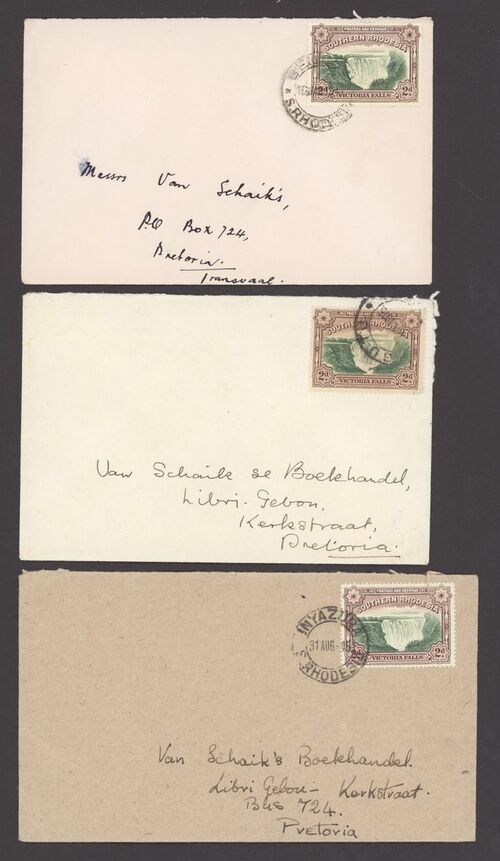 POSTAGE AND REVENUE
SOUTHERN RHODESIA
2d 2d
VICTORIA FALLS
S.RHODESIA
Messrs Van Schaik's,
P.O Box 724,
Pretoria.
Transvaal.
POSTAGE AND REVENUE
SOUTHERN RHODESIA
2d 2d
VICTORIA FALLS
Van Schaik se Boekhandel,
Libri-Gebou,
Kerkstraat,
Pretoria.
POSTAGE AND REVENUE
SOUTHERN RHODESIA
2d 2d
VICTORIA FALLS
INYAZURA
31 AUG
S. RHODESIA
Van Schaik's Boekhandel.
Libri Gebou- Kerkstraat.
Bus 724.
Pretoria